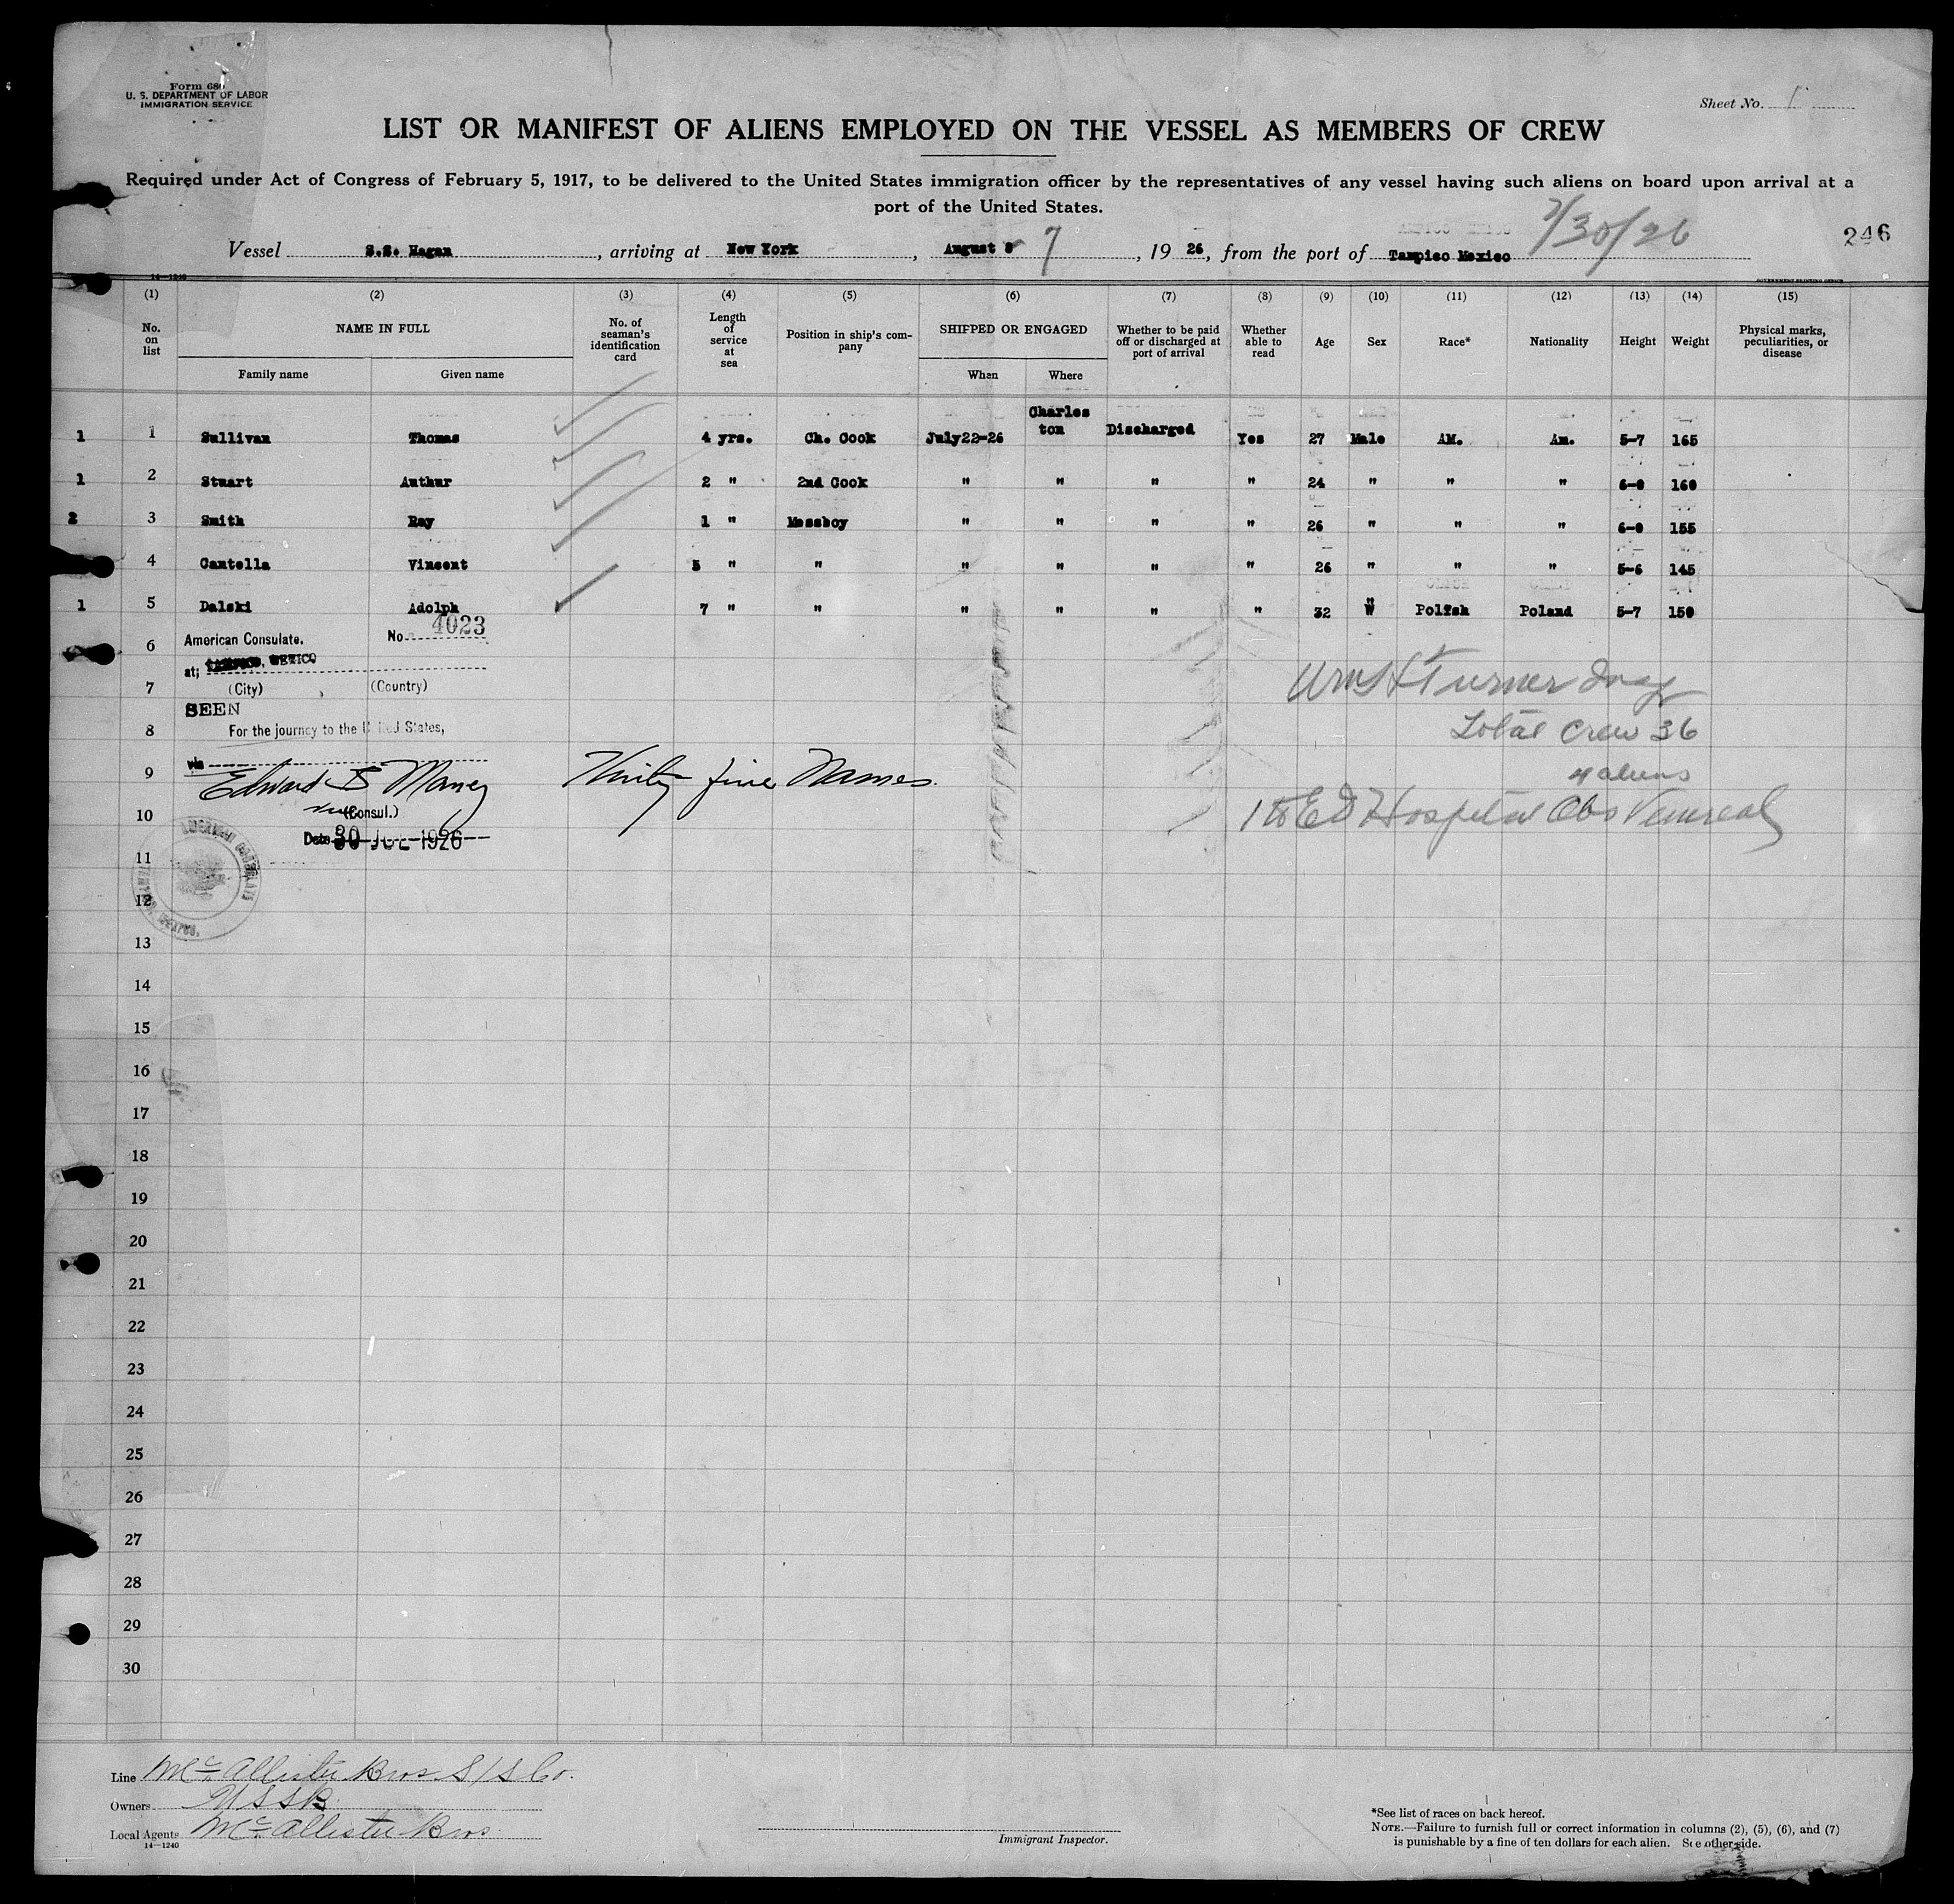 Form 680
U. S. DEPARTMENT OF LABOR
IMMIGRATION SERVICE
Sheet No. 1
LIST OR MANIFEST OF ALIENS EMPLOYED ON THE VESSEL AS MEMBERS OF CREW
Required under Act of Congress of February 5, 1917, to be delivered to the United States immigration officer by the representatives of any vessel having such aliens on board upon arrival at a
port of the United States.
7/30/26
246
Vessel S.S. Hagan, arriving at New York, August 8 7, 19 26, from the port of Tampico Mexico
14-1240
GOVERNMENT PRINTING OFFICE
(1) (2) (3) (4) (5) (6) (7) (8) (9) (10) (11) (12) (13) (14) (15)
No. on list NAME IN FULL No. of seaman's identification card Length of service at sea Position in ship's company SHIPPED OR ENGAGED Whether to be paid off or discharged at port of arrival Whether able to read Age Sex Race* Nationality Height Weight Physical marks, peculiarities, or disease
Family name Given name When Where
1 1 Sullivan Thomas 4 yrs. Ch. Cook July22-26 Charleston Discharged Yes 27 Male AM. Am. 5-7 165
1 2 Stuart Authur 2 " 2nd Cook " " " " 24 " " " 6-0 160
2 3 Smith Ray 1 " Messboy " " " " 26 " " " 6-0 155
4 Cantella Vinsent 5 " " " " " " 26 " " " 5-6 145
1 5 Dalski Adolph 7 " " " " " " 32 " W Polish Poland 5-7 150
6 American Consulate. No. 4023
at; TAMPICO, MEXICO
7 (City) (Country)
SEEN
8 For the journey to the United States,
via
9 Edward S Maney Thirty five Names.
10 (Consul.)
Date 30 JUL 1926
11
12
13
14
15
16
17
18
19
20
21
22
23
24
25
26
27
28
29
30
Wm H Turner Insp
Total Crew 36
4 aliens
1 to E I Hospital Obs Venereal
Line McAllister Bros S/S Co.
Owners USSB
Local Agents McAllister Bros
14-1240
Immigrant Inspector.
*See list of races on back hereof.
NOTE.—Failure to furnish full or correct information in columns (2), (5), (6), and (7)
is punishable by a fine of ten dollars for each alien. See other side.